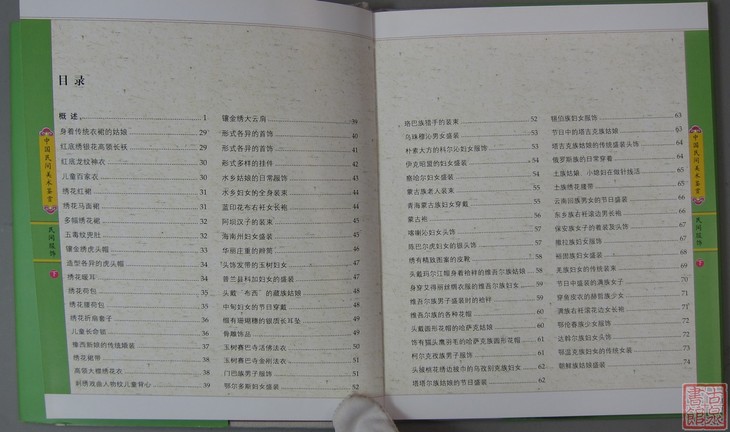 目录
概述 1
身着传统衣裙的姑娘 29
红底绣银花高领长袄 29
红底龙纹神衣 30
儿童百家衣 30
绣花红裙 31
绣花马面裙 31
多幅绣花裙 32
五毒纹兜肚 32
镶金绣虎头帽 33
造型各异的虎头帽 33
绣花暖耳 34
绣花荷包 34
绣花腰荷包 35
绣花折扇套子 36
儿童长命锁 36
豫西新娘的传统婚装 37
绣花裙带 38
高领大襟绣花衣 38
刺绣戏曲人物纹儿童背心 39
镶金绣大云肩 39
形式各异的首饰 40
形式各异的首饰
形式多样的挂件 42
水乡姑娘的日常服饰
水乡妇女的全身装束
蓝印花布右衽女长袍 44
阿坝汉子的装束 45
海南州妇女盛装
华丽庄重的辫筒
头饰发带的玉树妇女
普兰县科加妇女的盛装
头戴“布西”的藏族姑娘
中甸妇女的节日穿戴
缀有珊瑚穗的银质长耳坠
骨雕饰品
玉树赛巴寺活佛法衣
玉树赛巴寺金刚法衣
门巴族男子服饰
鄂尔多斯妇女盛装 52
珞巴族猎手的装束 52
乌珠穆沁男女盛装 53
朴素大方的科尔沁妇女服饰 53
伊克昭盟的妇女盛装 54
察哈尔妇女盛装 54
蒙古族老人装束 55
青海蒙古族妇女穿戴 55
蒙古袍 56
喀喇沁妇女头饰 56
陈巴尔虎妇女的银头饰 57
绣有精致图案的皮靴 58
头戴玛尔江帽身着袷袢的维吾尔族姑娘 58
身穿艾得丽丝绸衣服的维吾尔族妇女 58
维吾尔族男子盛装时的袷袢 59
维吾尔族的各种花帽 60
头戴圆形花帽的哈萨克姑娘 60
饰有猫头鹰羽毛的哈萨克族圆形花帽 60
柯尔克孜族男子服饰 61
头换桃花绣边披巾的乌孜别克族妇女 62
塔塔尔族姑娘的节日盛装 62
锡伯族妇女服饰 63
节日中的塔吉克族姑娘 63
塔吉克族姑娘的传统盛装头饰 64
俄罗斯族的日常穿着 64
土族姑娘、小媳妇在做针线活 65
土族绣花腰带 65
云南回族男女的节日盛装 66
东乡族右衽滚边男长袍 66
保安族女子的着装及头饰 67
撒拉族妇女服饰
裕固族妇女盛装
羌族妇女的传统装束 69
节日中盛装的满族女子 70
穿鱼皮衣的赫哲族少女 71
满族右衽滚花边女长袍 71
鄂伦春族少女服饰 72
达斡尔族妇女头饰
鄂温克族妇女的传统女装 73
朝鲜族姑娘盛装 74
中国民间美术鉴赏
民间服饰
中国民间美术鉴赏
民间服饰